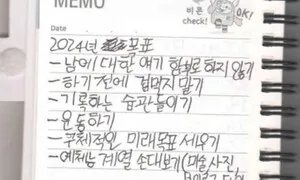 MEMO
비폰
check!
OK!
Date
2024년 목표
- 남에 대한 얘기 함부로 하지 않기
- 하기 전에 겁먹지 말기
- 기록하는 습관들이기
- 운동하기
- 구체적인 미래목표 세우기
- 예체능 계열 손대보기(미술, 사진,